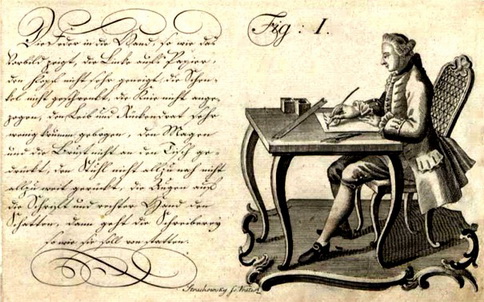 Die Feder in die Hand, so wie das
Vorbild zeigt, die Linke aufs Papier,
den Kopf nicht sehr geneigt, die Schen-
kel nicht geschrenkt, die Knie nicht ange-
zogen, den Leib und Rückendrat sehr
wenig krumm gebogen, den Magen
und die Brust nicht an den Tisch ge-
drückt, den Stuhl nicht allzu nah nicht
allzu weit gerückt, die Augen auf
die Schrift und rechter Hand den
Schatten, dann geht die Schreiberey
so wie sie soll von statten.
Fig: I.
Strachowsky sc: